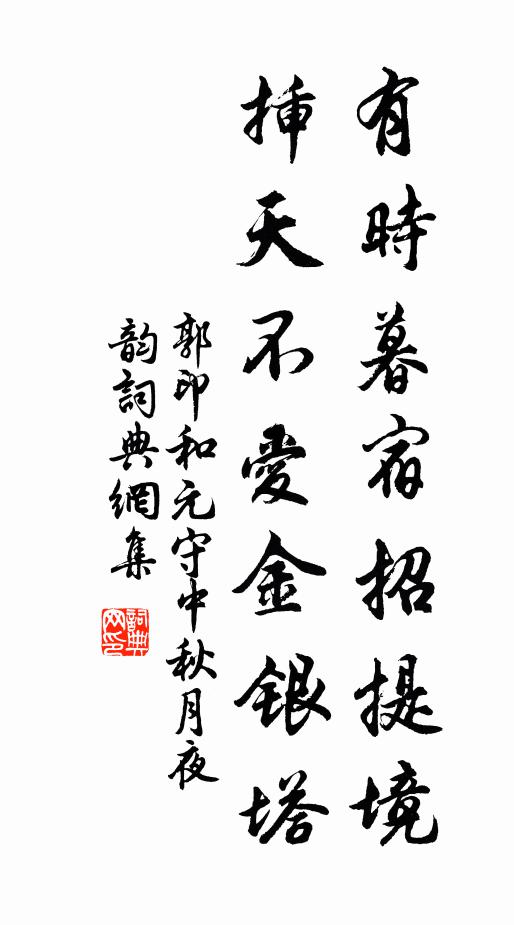 有時暮宿招提境
挿天不愛金銀塔
郭印和元守中秋月夜
韵詞典網集
詞典